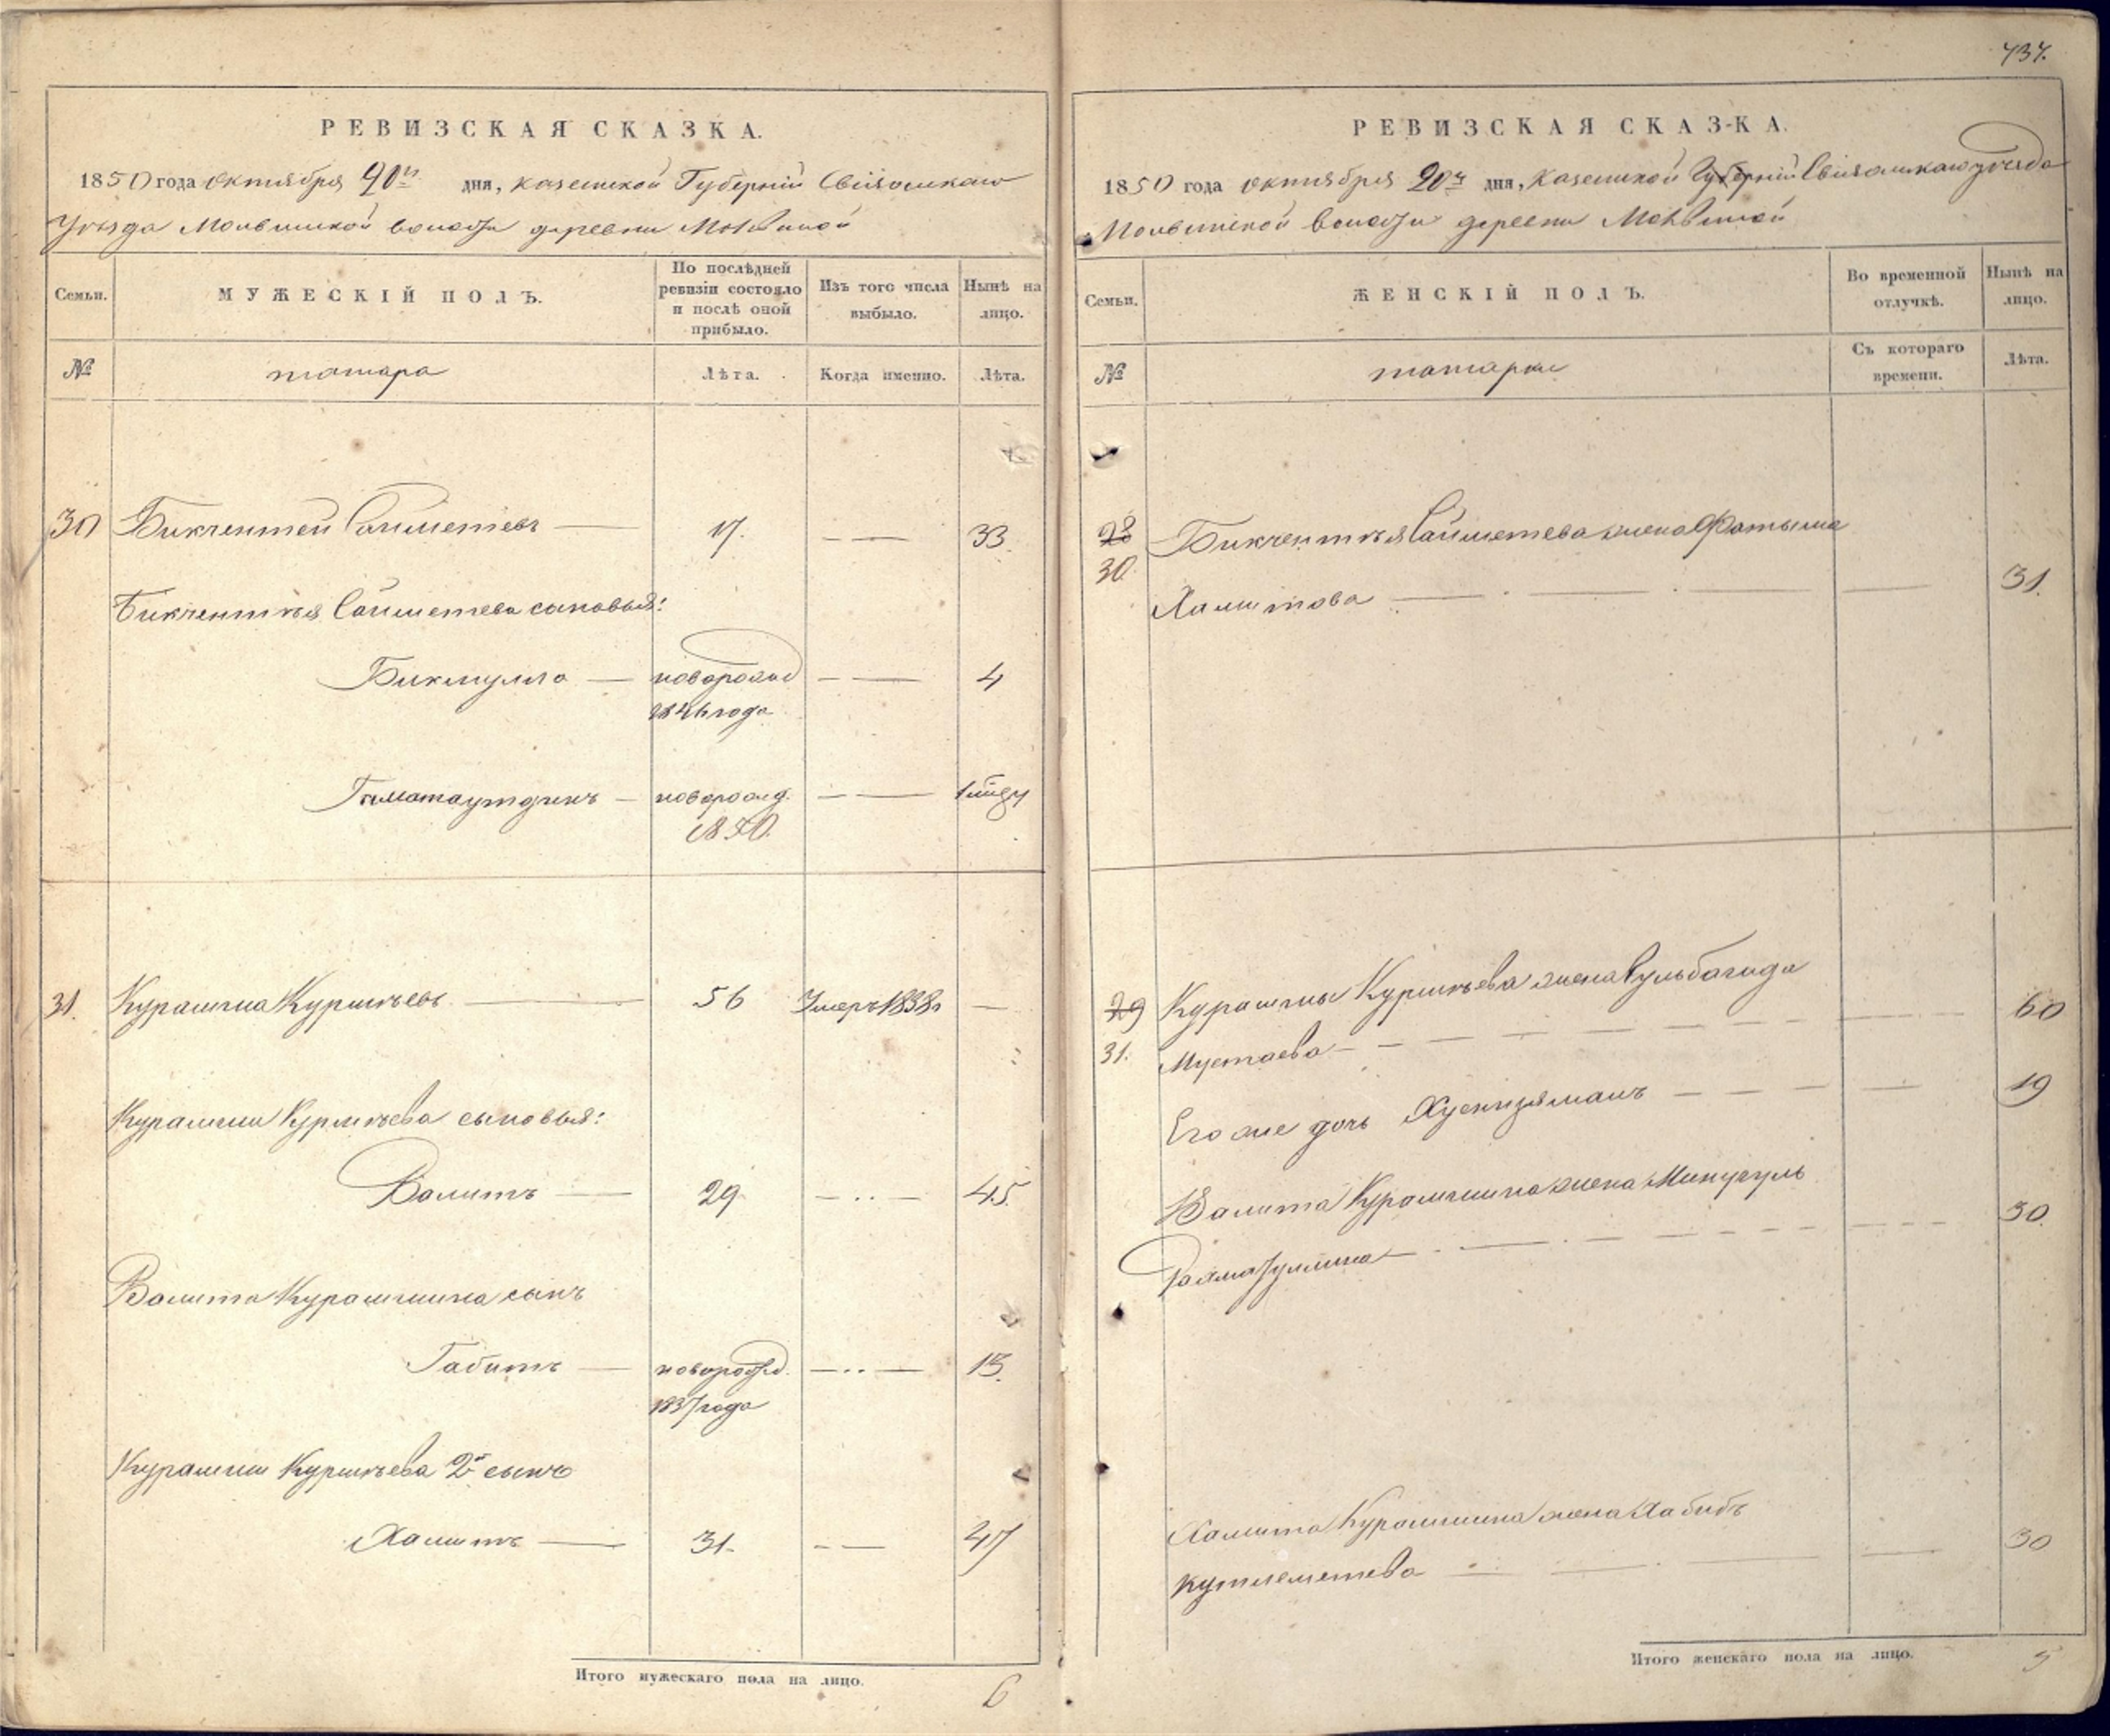 737.
РЕВИЗСКАЯ СКАЗКА.
1850 года октября 20го дня, казанской Губерніи Свіяжскаго
Уѣзда Молвинской волости деревни Молвиной
Семьи.
МУЖЕСКІЙ ПОЛЪ.
По послѣдней ревизіи состояло и послѣ оной прибыло.
Изъ того числа выбыло.
Нынѣ на лицо.
№
татара
Лѣта.
Когда именно.
Лѣта.
30 Бикчентей Сайметевъ 17. 33.
Бикчентѣя Сайметева сыновья:
Бикмулла новорожд 4
1846 года
новорожд.
1850.
31. Курамша Курмѣевъ 56 Умеръ 1838 г
Курамши Курмѣева сыновья:
Валитъ 29 45.
Валита Курамшина сынъ
Габитъ новорожд. 13.
1837 года
Курамши Курмѣева 2й сынъ
Халитъ 31. 47
Итого мужескаго пола на лицо. 6
РЕВИЗСКАЯ СКАЗКА.
1850 года октября 20го дня, Казанской Губерніи Свіяжскаго уѣзда
Молвинской волости деревни Молвиной
Семьи.
ЖЕНСКІЙ ПОЛЪ.
Во временной отлучкѣ.
Нынѣ на лицо.
№
татарки
Съ котораго времени.
Лѣта.
28 Бикчентѣя Сайметева жена Фатыма
30. Халитова 31.
29 Курамши Курмѣева жена Гульбагида
31. Мустаева 60
Его же дочь Хуснизяманъ 19
Валита Курамшина жена Минугуль
Рахматуллина 30.
Халита Курамшина жена Хабибъ
Кутлеметева 30
Итого женскаго пола на лицо. 5